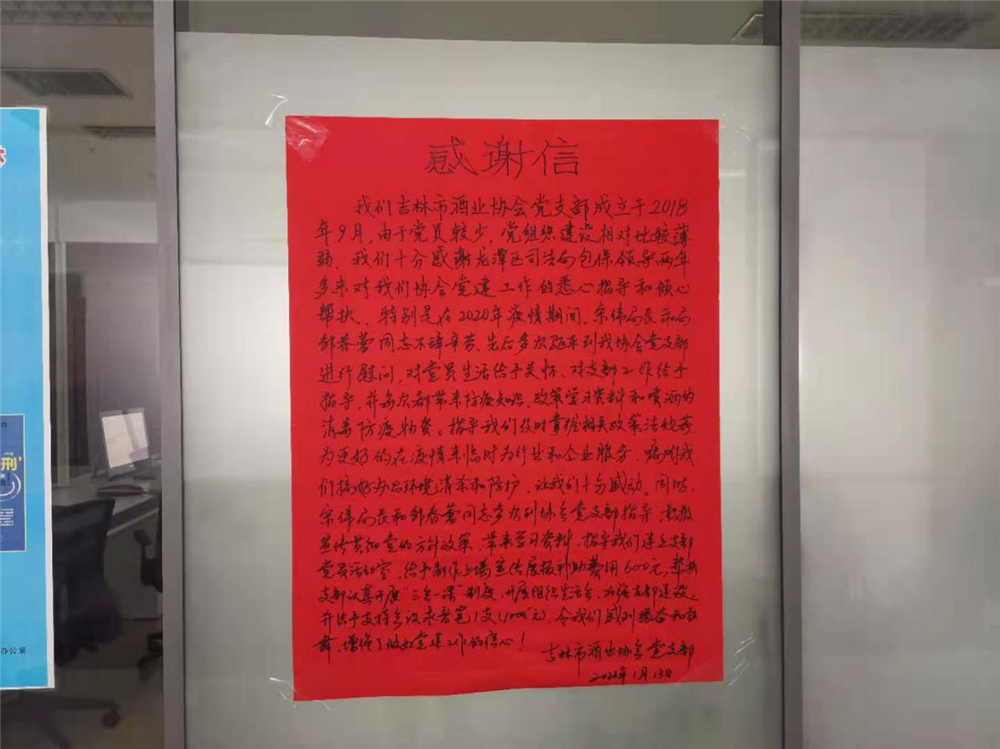 感谢信
我们吉林市酒业协会党支部成立于2018
年9月,由于党员较少,党组织建设相对比较薄
弱、我们十分感谢龙潭区司法局包保领导两年
多来对我们协会党建工作的悉心指导和倾心
帮扶、特别是在2020年疫情期间,宗伟局长和局
邹春蕾同志不辞辛苦、先后多次驱车到我协会党支部
进行慰问,对党员生活给予关怀、对支部工作给予
指导,并每次都带来防疫知识、政策学习资料和喷洒的
消毒防疫物资。指导我们及时掌握相关政策法规等
为更好的在疫情来临时为行业和企业服务、嘱咐我
们搞好办公环境清杀和防护,让我们十分感动。同时、
宗伟局长和邹春蕾同志多次到协会党支部指导,
宣传贯彻党的方针政策、带来学习资料、指导我们建立支部
党员活动室,给予制作上墙宣传展板补助费用600元,帮助
支部认真开展"三会一课"制度,开展组织生活会,加强支部建设、
并给予支持会议录音笔1支(1000元),令我们感到振奋和鼓
舞,增强了做好党建工作的信心!
吉林市酒业协会党支部
1月13日
刑
办公室